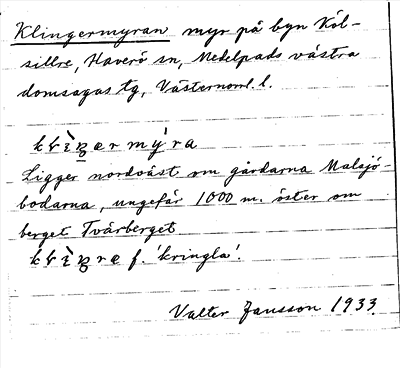 Klingermyran myr på bynKöl-
sillre, Haverö sn, Medelpads västra
domsagas tg, Västernorrl. l.
Ligger nordväst om gårdarna Malsjö-
bodarna, ungefär 1000 m. öster om
berget Tvärberget
f. 'kringla'.
Valter Jansson 1933.